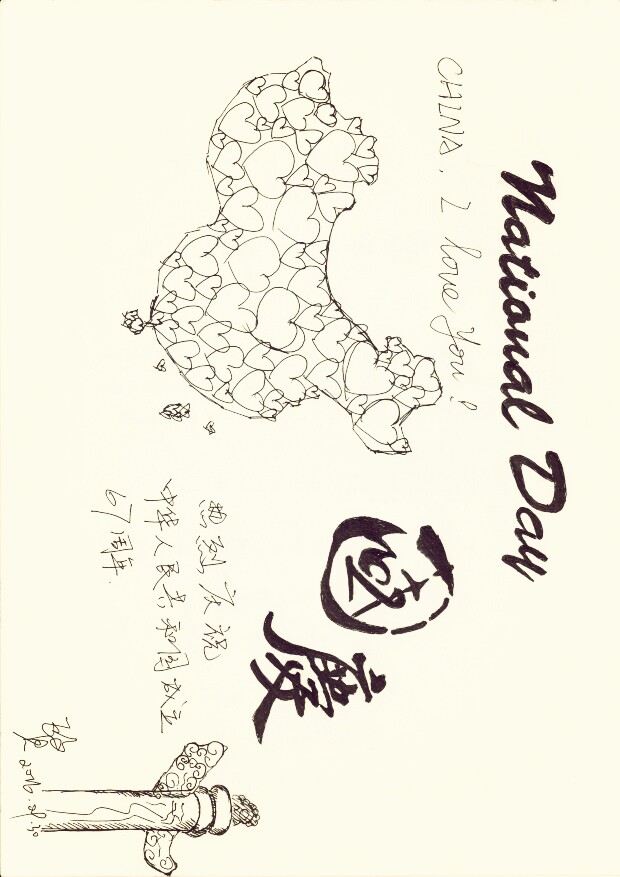 National Day
CHINA, I love You!
國慶
热烈庆祝
中华人民共和国成立
67周年.